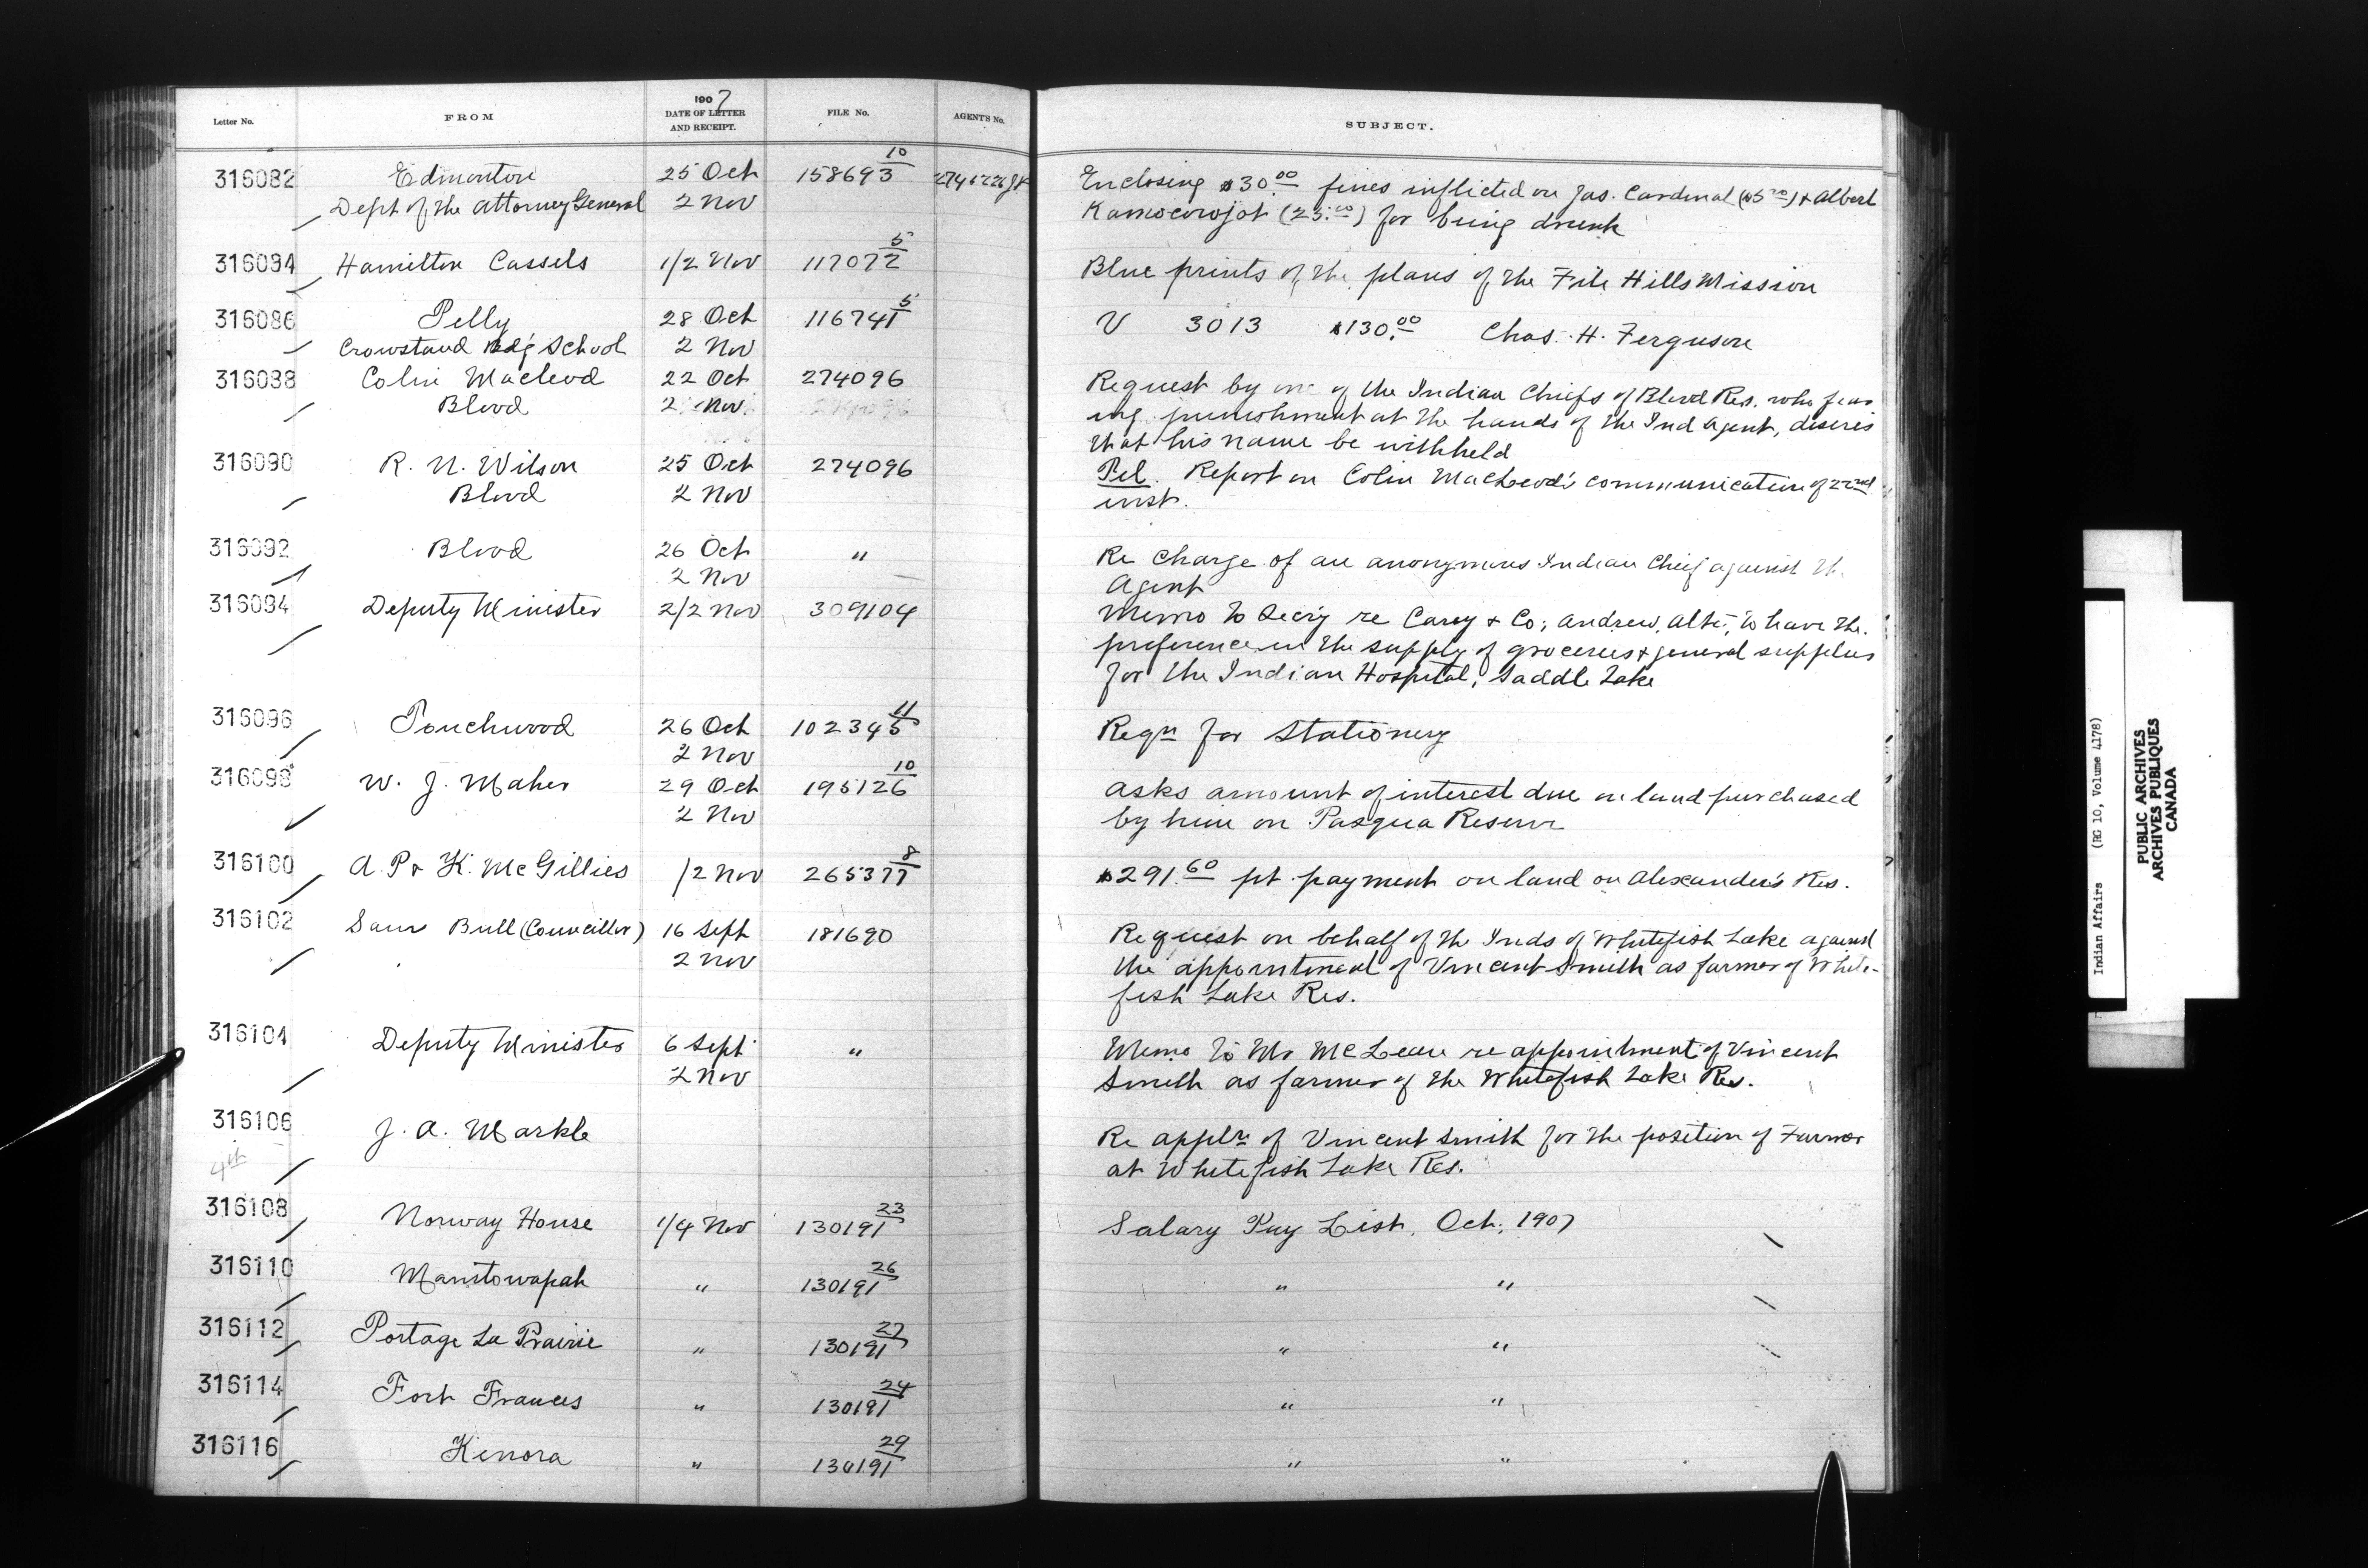 1907
Letter No. FROM DATE OF LETTER AND RECEIPT. FILE No. AGENT'S No. SUBJECT.
316082 Edmonton 25 Oct 158693 10 Enclosing $30.00 fines inflicted on Jas. Cardinal & Albert
Dept of the Attorney General 2 Nov for being drunk
316084 Hamilton Cassels 1/2 Nov 117072 5 Blue prints of the plans of the File Hills Mission
316086 Pelly 28 Oct 116741 5 V 3013 $130.00 Chas. H. Ferguson
Crowstand Bdg School 2 Nov
316088 Colin Macleod 22 Oct 274096 Request by one of the Indian Chiefs of Blood Res. who fear
Blood 2 Nov ing punishment at the hands of the Ind Agent, desires
that his name be withheld
316090 R. N. Wilson 25 Oct 274096 Pel. Report on Colin MacLeod's communication of 22nd
Blood 2 Nov inst.
316092 Blood 26 Oct " Re charge of an anonymous Indian Chief against th.
2 Nov Agent
316094 Deputy Minister 2/2 Nov 309104 Memo to Secy re Carey & Co; Andrew, Alta, to have the
preference in the supply of groceries & general supplies
for the Indian Hospital, Saddle Lake
316096 Touchwood 26 Oct 102345 11 Reqn for Stationery
2 Nov
316098 W. J. Maher 29 Oct 195126 10 Asks amount of interest due on land purchased
2 Nov by him on Pasqua Reserve
316100 A. P & K. McGillies /2 Nov 265377 8 $291.60 pt payment on land on Alexander's Res.
316102 Sam Bull (Councillor) 16 Sept 181690 Request on behalf of the Inds of Whitefish Lake against
2 Nov the appointment of Vincent Smith as farmer of White-
fish Lake Res.
316104 Deputy Minister 6 Sept " Memo to Mr McLean re appointment of Vincent
2 Nov Smith as farmer of the Whitefish Lake Res.
316106 J. A. Markle Re appln of Vincent Smith for the position of Farmer
4th at Whitefish Lake Res.
316108 Norway House 1/4 Nov 130191 23 Salary Pay List, Oct, 1907
316110 Manitowapah " 130191 26 " "
316112 Portage La Prairie " 130191 27 " "
316114 Fort Frances " 130191 24 " "
316116 Kenora " 130191 29 " "
Indian Affairs (RG 10, Volume 4178)
PUBLIC ARCHIVES
ARCHIVES PUBLIQUES
CANADA